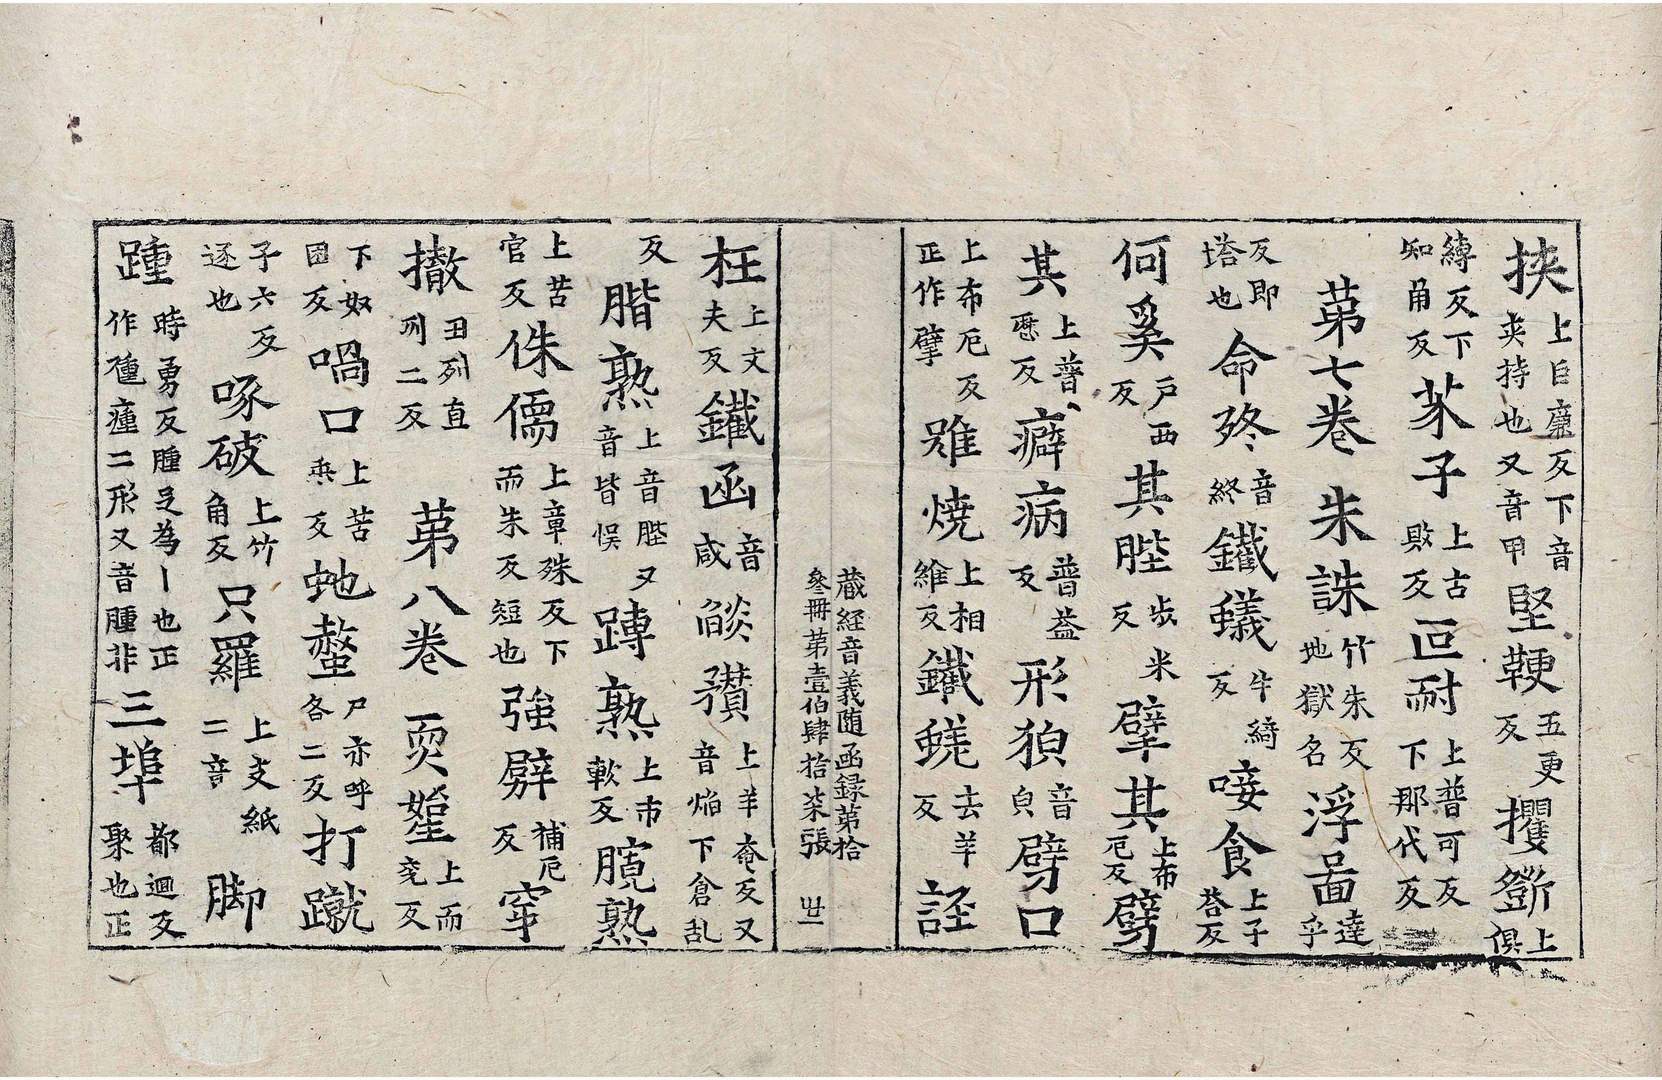 挾上白廉反下音夾持也又音甲堅鞕五更反攫㔁上俱
縛反下知角反苿子上古敗反叵耐上普可反下那代反
苐七卷 朱誅竹朱反地獄名浮啚達乎
反即塔也命終音終鐵蟻牛綺反唼食上子荅反
何奚戶西反其䏶步米反擘其上布厄反劈
其上普𢟍反癖病普益反形狽音貝劈口
上布厄反正作擘雖燒上相維反鐵蜣去羊反誑
藏經音義隨函録苐拾
叄冊苐壹伯肆拾柒張 廿一
枉上文夫反鐵函音咸䭘䜺上羊奄反又音焰下倉乱
反䐡熟上音䏶又音皆悮膞熟上市軟反臗熟
上苦官反侏儒上章殊反下而朱反短也強劈補厄反穿
撤丑列直列二反 苐八卷 耎㜽上而兖反
下奴困反喎口上苦乖反虵螫尸亦呼各二反打蹴
子六反逐也啄破上竹角反只羅上支紙二音脚
踵時勇反腫足為丨也正作㣫瘇二形又音腫非三塠都迴反聚也正